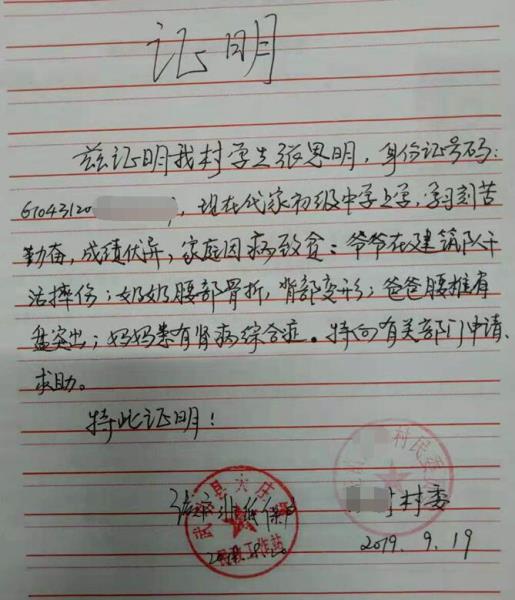 证明
兹证明我村学生张思明，身份证号码：
61043120，现在代家初级中学上学，学习刻苦
勤奋，成绩优异，家庭因病致贫：爷爷在建筑队干
活摔伤；奶奶腰部骨折，背部变形；爸爸腰椎有
盘突出；妈妈患有肾病综合症。特向有关部门申请
求助。
特此证明！
村民委
村委
2019.9.19